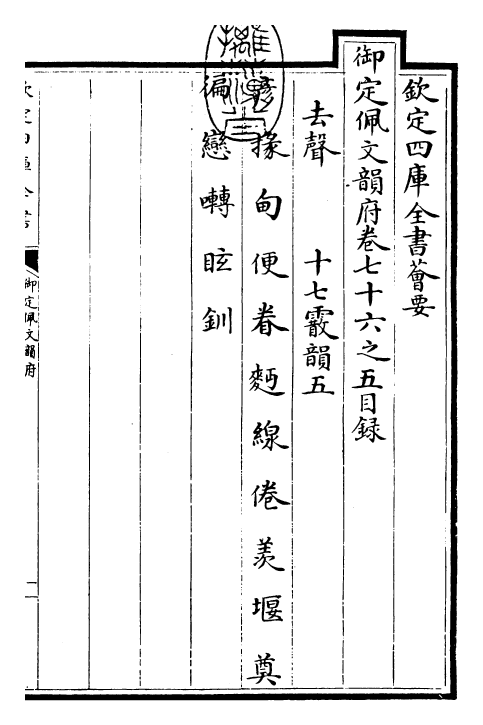 欽定四庫全書薈要
御定佩文韻府卷七十六之五目録
去聲　　十七霰韻五
掾甸便眷麪線倦羨堰奠
徧戀囀眩釧
御定佩文韻府